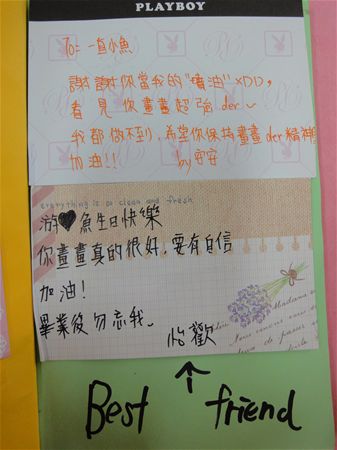 PLAYBOY
To= 一直小魚
謝謝你當我的"噴油" XDD,
看見你畫畫超強 der ~
我都做不到, 希望你保持畫畫 der 精神
加油!!
by 安安
everything is so clean and fresh
游♥魚生日快樂
你畫畫真的很好, 要有自信
加油!
畢業後勿忘我.
怡歡
↑
Best friend